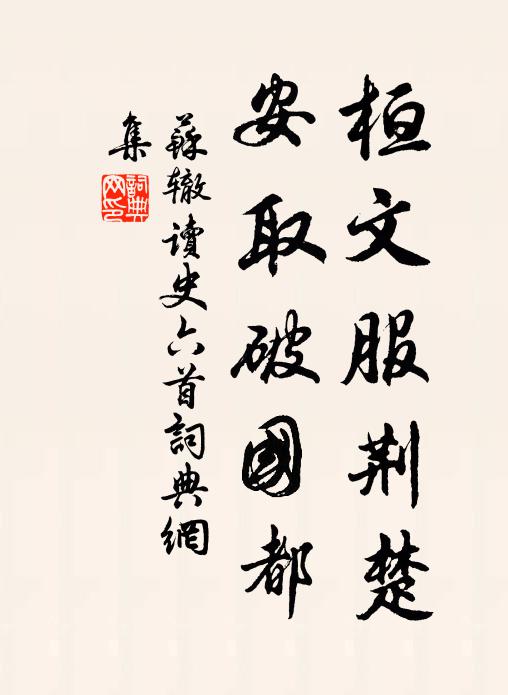 桓文服荆楚
安取破國都
蘇辙讀史六首詞典網
集
詞典
网印